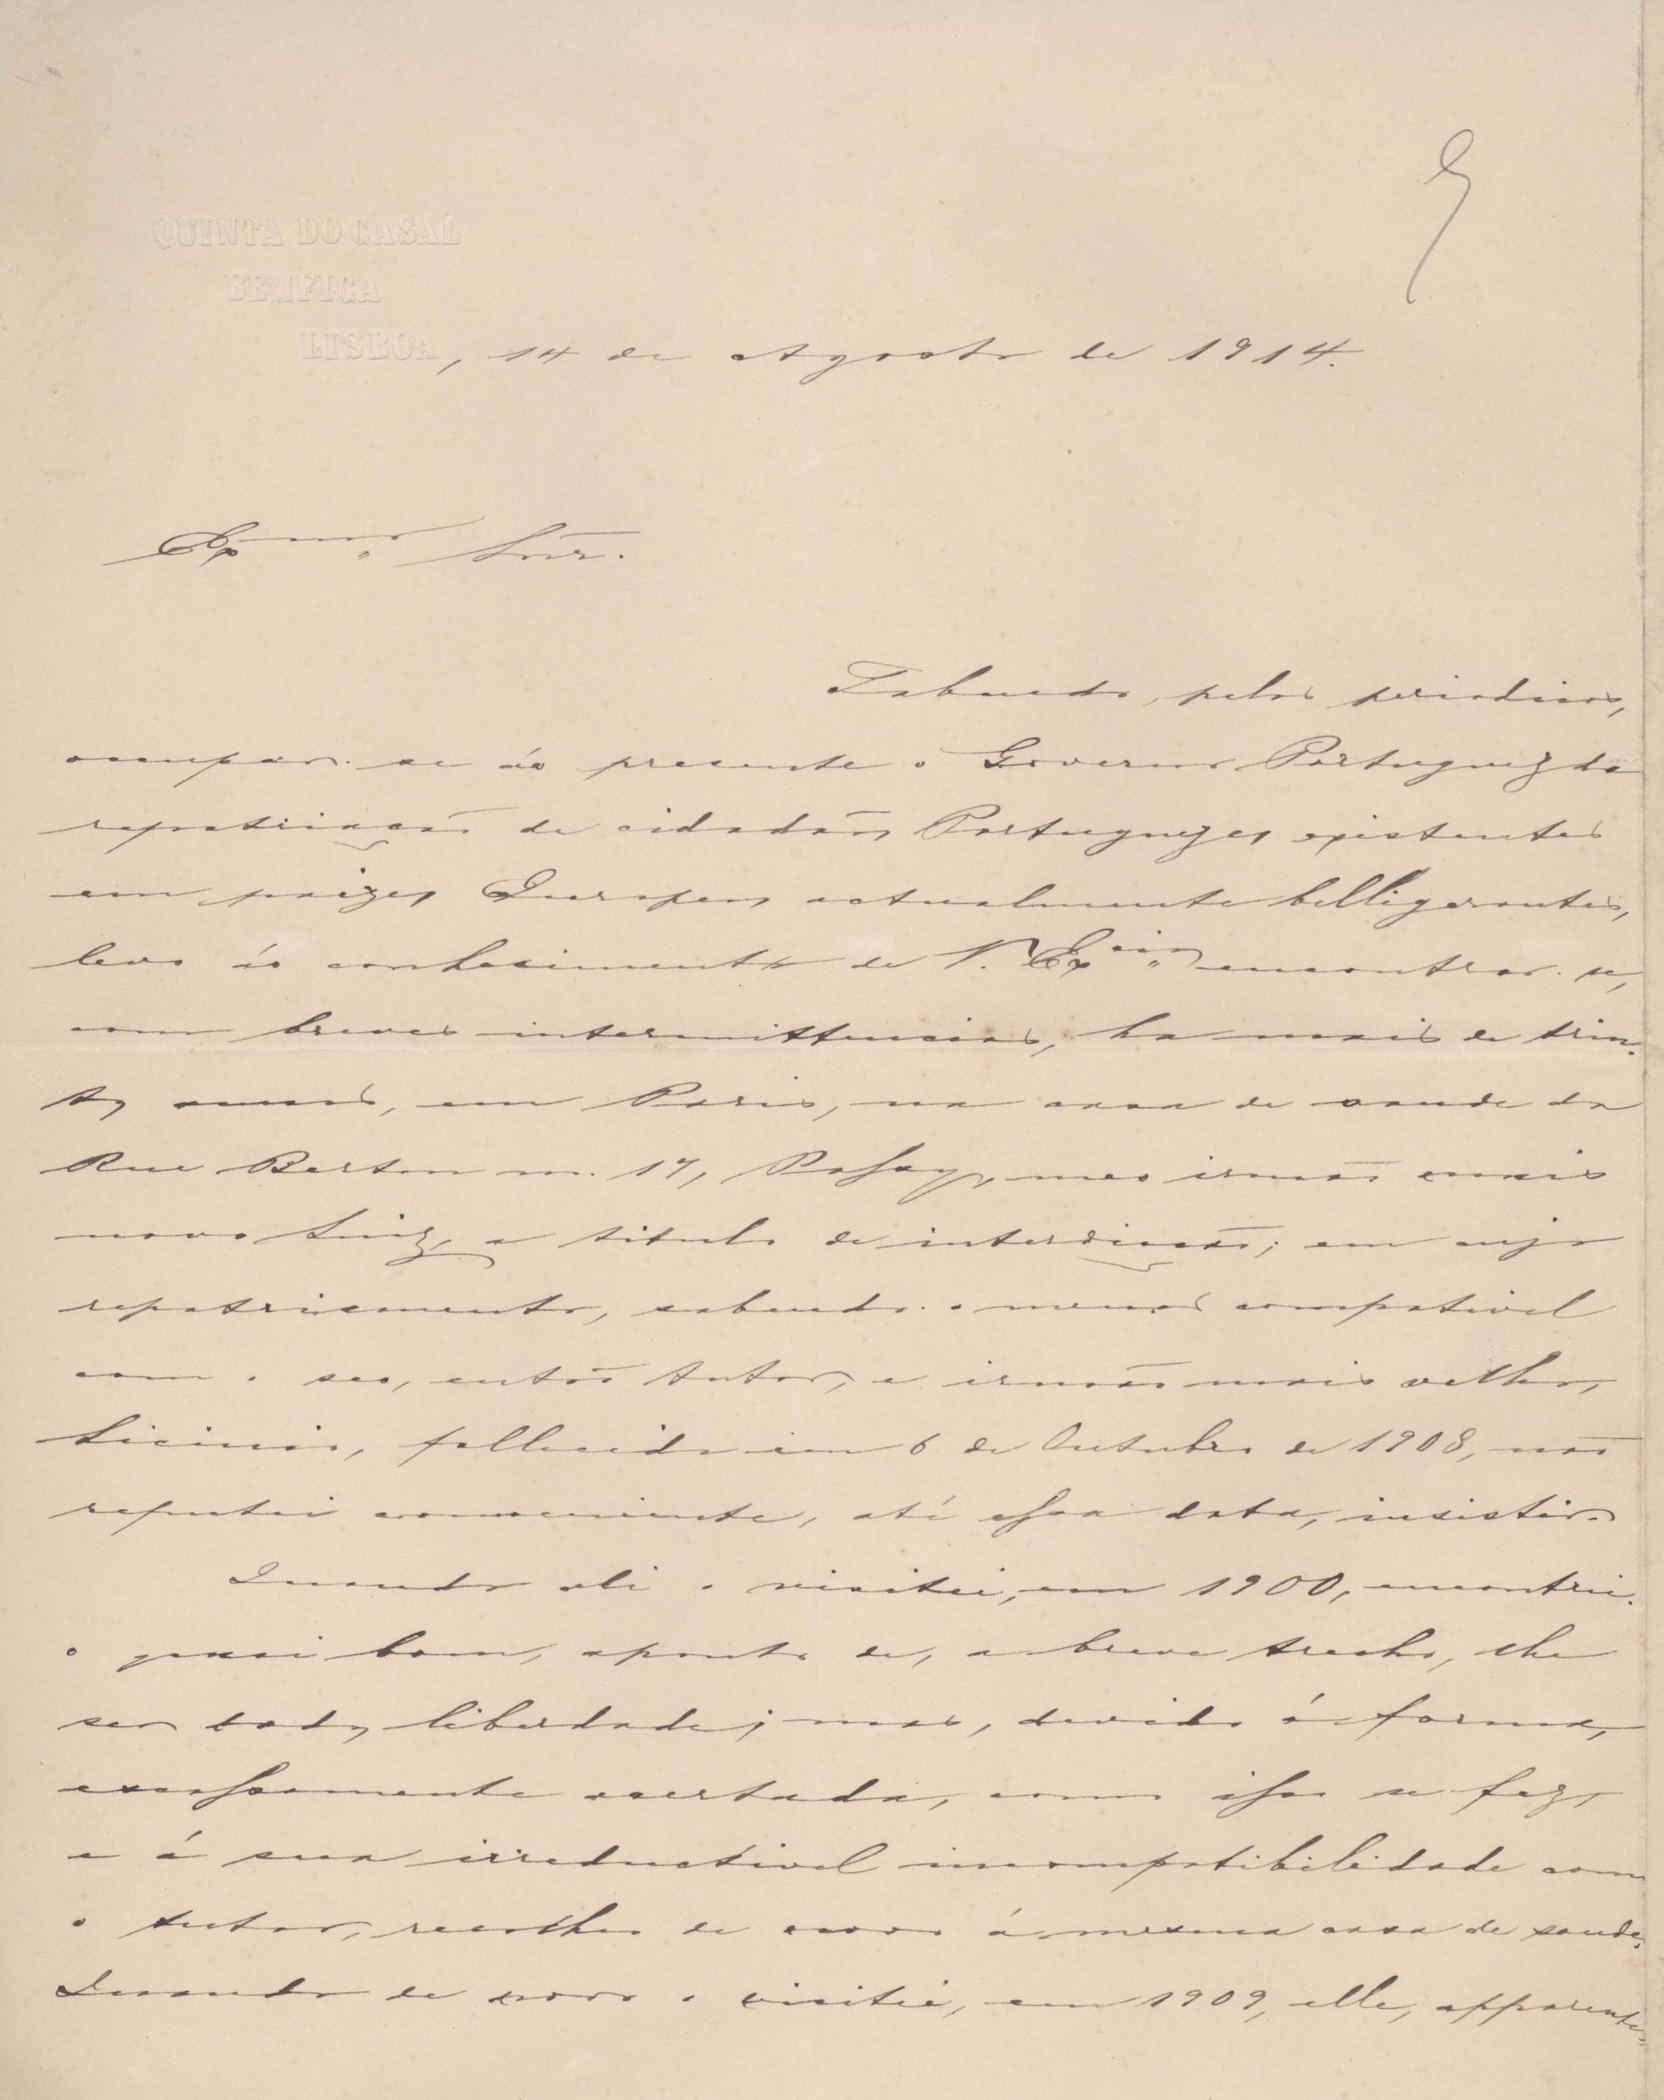 QUINTA DO CASAL
BEMFICA
LISBOA, 14 de Agosto de 1914.
Exmo. Snr.
Sabendo, pelos periodicos,
occupar-se áo presente o Governo Portuguez da
repatriação de cidadãos Portuguezes existentes
em paizes Europeos actualmente belligerantes,
levo áo conhecimento de V. Excia. encontrar-se,
com breves intermittencias, ha mais de trin-
ta annos, em Paris, na casa de saude da
Rue Berton n. 17, Passy, meo irmão mais
novo Luiz, a titulo de interdicção; em cujo
repatriamento, sabendo-o menos compativel
com o seo, então tutor, e irmão mais velho,
Licinio, fallecido em 6 de Outubro de 1908, não
reputei conveniente, até essa data, insistir.
Quando ali o visitei, em 1900, encontrei-
o quasi bom, aponto de, a breve trecho, lhe
ser dada liberdade; mas, devido á forma,
escassamente acertada, como isso se fez,
e á sua irreductivel incompatibilidade com
o tutor, recolheo de novo á mesma casa de saude.
Quando de novo o visitei, em 1909, elle, apparente-